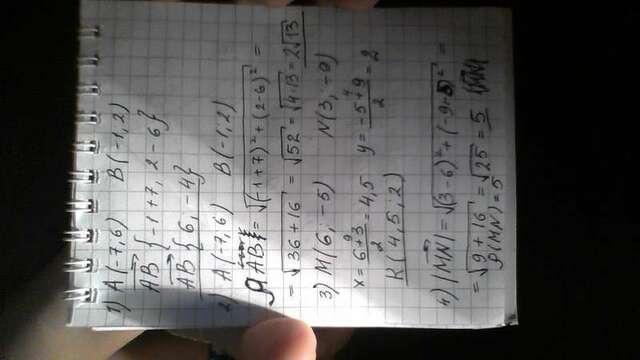 1) A(-7,6) B(-1,2)
AB {-1+7, 2-6}
AB {6, -4}
2) A(-7,6) B(-1,2)
AB = √(-1+7)²+(2-6)² =
= √36+16 = √52 = √4·13 = 2√13
3) M(6,-5) N(3,-9)
x = 6+3/2 = 4,5 y = -5+9/2 = 2
K(4,5; 2)
4) |MN| = √(3-6)²+(-9+5)² =
= √9+16 = √25 = 5
P(MN) = 5